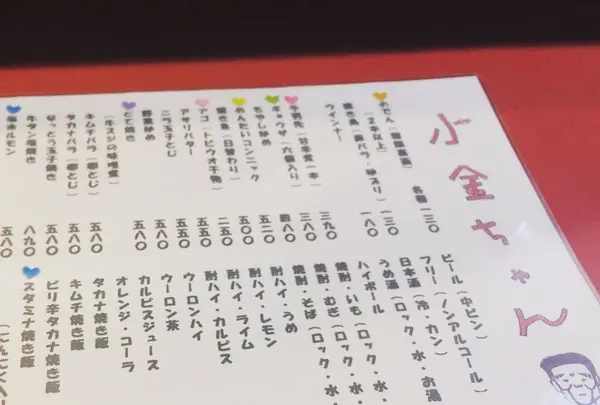 小金ちゃん
おでん（種類直通）
各種一三〇
（二本以上）
焼き鳥（豚バラ・砂スリ）
一三〇
一八〇
ウインナー
手羽先（甘辛煮一本）
三九〇
ギョウザ（六個入り）
三八〇
もやし炒め
四八〇
めんたいコンニャク
五二〇
焼き鳥（日替わり）
五八〇
アゴ（トビウオ干物）
二五〇
アサリバター
五五〇
ニラ玉子とじ
五五〇
野菜炒め
五五〇
どて焼き
五八〇
（牛スジの味噌煮）
キムチバラ（卵とじ）
五八〇
タカナバラ（卵とじ）
五八〇
なっとう玉子焼き
五八〇
牛タン塩焼き
八九〇
塩ホルモン
五八〇
ビール（中ビン）
フリー（ノンアルコール）
日本酒（冷・カン）
うめ酒（ロック・水・お湯
ハイボール
焼酎・いも（ロック・水・
焼酎・むぎ（ロック・水・
焼酎・そば（ロック・水・
酎ハイ・うめ
酎ハイ・レモン
酎ハイ・ライム
酎ハイ・カルピス
ウーロンハイ
ウーロン茶
カルピスジュース
オレンジ・コーラ
タカナ焼き飯
キムチ焼き飯
ピリ辛タカナ焼き飯
スタミナ焼き飯
（にんにく